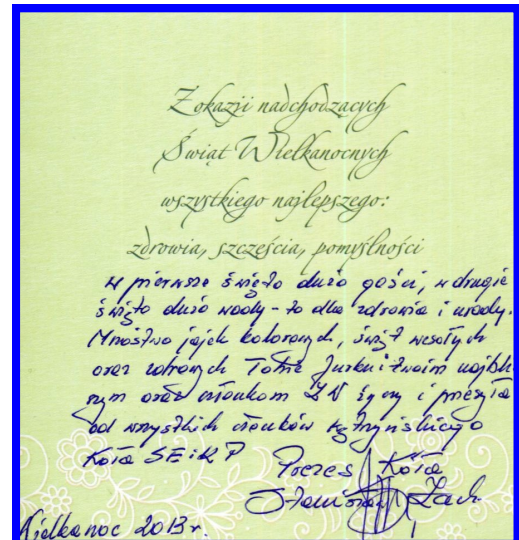 Z okazji nadchodzących
Świąt Wielkanocnych
wszystkiego najlepszego:
zdrowia, szczęścia, pomyślności
w pierwsze święto dużo gości, w drugie
święto dużo wody - to dla zdrowia i urody.
Mnóstwo jajek kolorowych, świąt wesołych
oraz zdrowych Tobie Jurku i Twoim najbliż
szym oraz członkom ZW życzy i przesyła
od wszystkich członków kętrzyńskiego
Koła SEiRP
Prezes Koła
Stanisław Żach
Wielkanoc 2013 r.